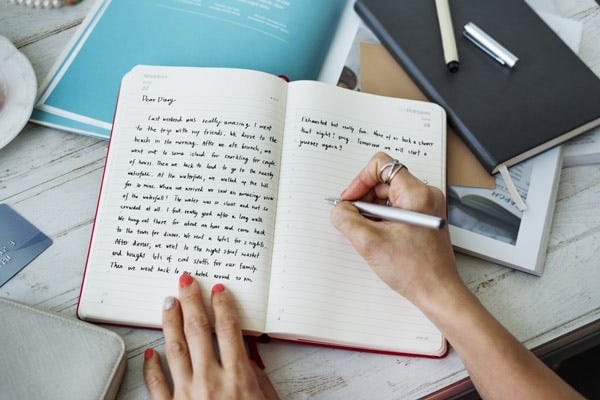 Dear Diary,
Last weekend was really amazing. I went
to the trip with my friends. We drove to the
beach in the morning. After we ate brunch, we
went out to some island for snorkling for couple
of hours. Then we back to land to go to the nearby
waterfalls. At the waterfalls, we walked up the hill
for 30 mins. When we arrived we saw an amazing view
of the waterfall! The water was so clear and not so
crowded at all. I felt really good after a long walk
We hang out there for about an hour and came back
to the town for dinner. We rent a hotel for 2 nights.
After dinner, we went to the night street market
and bought lots of cool stuffs for our family.
Then we went back to hotel around 10 pm.
Exhausted but really fun. None of us took a shower
that night! Tomorrow we will start a
journey again!